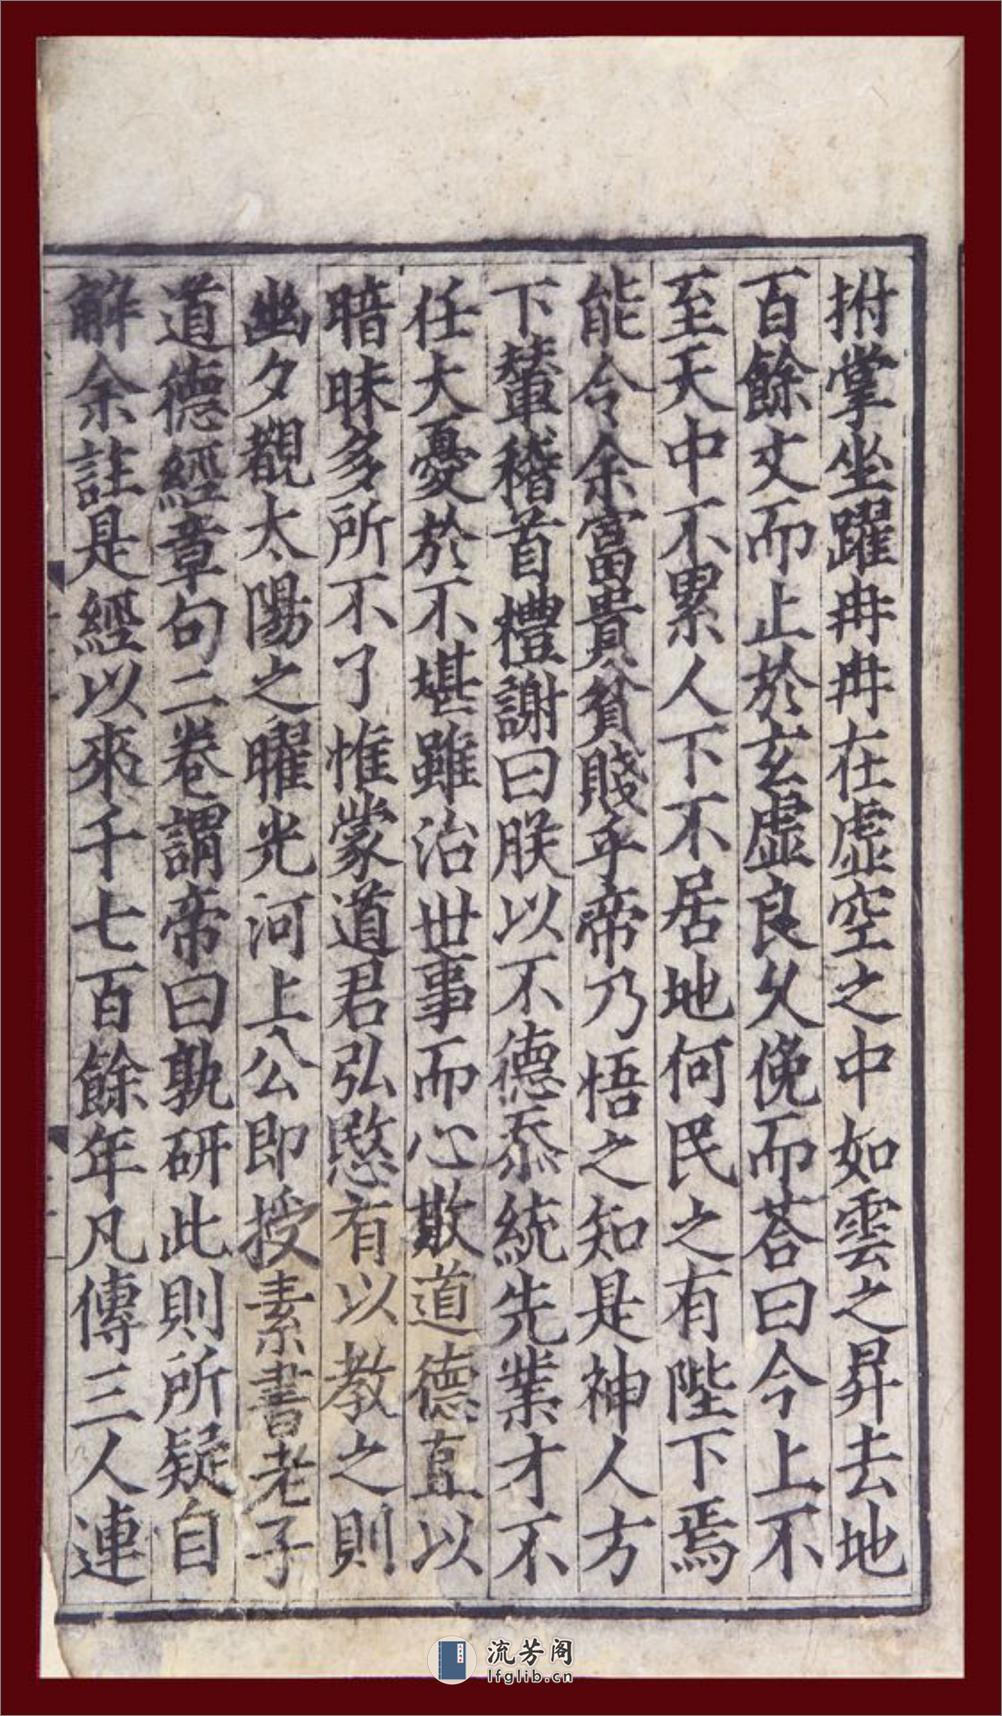 拊掌坐躍冉冉在虛空之中如雲之昇去地
百餘丈而止於玄虛良久俛而荅曰今上不
至天中不累人下不居地何民之有陛下焉
能令余富貴貧賤乎帝乃悟之知是神人方
下輦稽首禮謝曰朕以不德忝統先業才不
任大憂於不堪雖治世事而心敬道德直以
暗昧多所不了惟蒙道君弘愍有以教之則
幽夕覩太陽之曜光河上公即授素書老子
道德經章句二卷謂帝曰孰研此則所疑自
解余註是經以來千七百餘年凡傳三人連
流芳阁
lfglib.cn